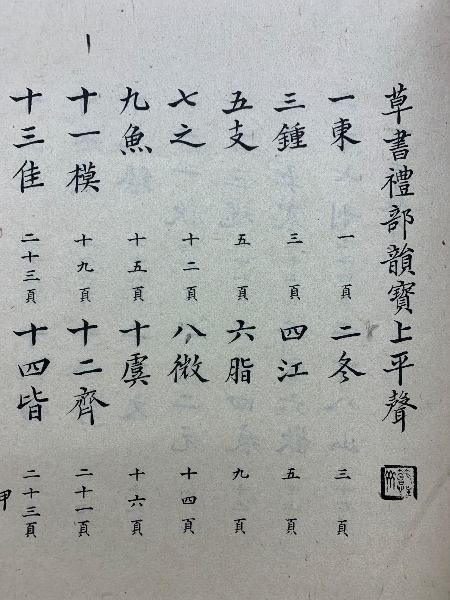 草書禮部韻寶上平聲
一東 一頁 二冬 三頁
三鍾 三頁 四江 五頁
五支 五頁 六脂 九頁
七之 十二頁 八微 十四頁
九魚 十五頁 十虞 十六頁
十一模 十九頁 十二齊 二十一頁
十三佳 二十三頁 十四皆 二十三頁
甲